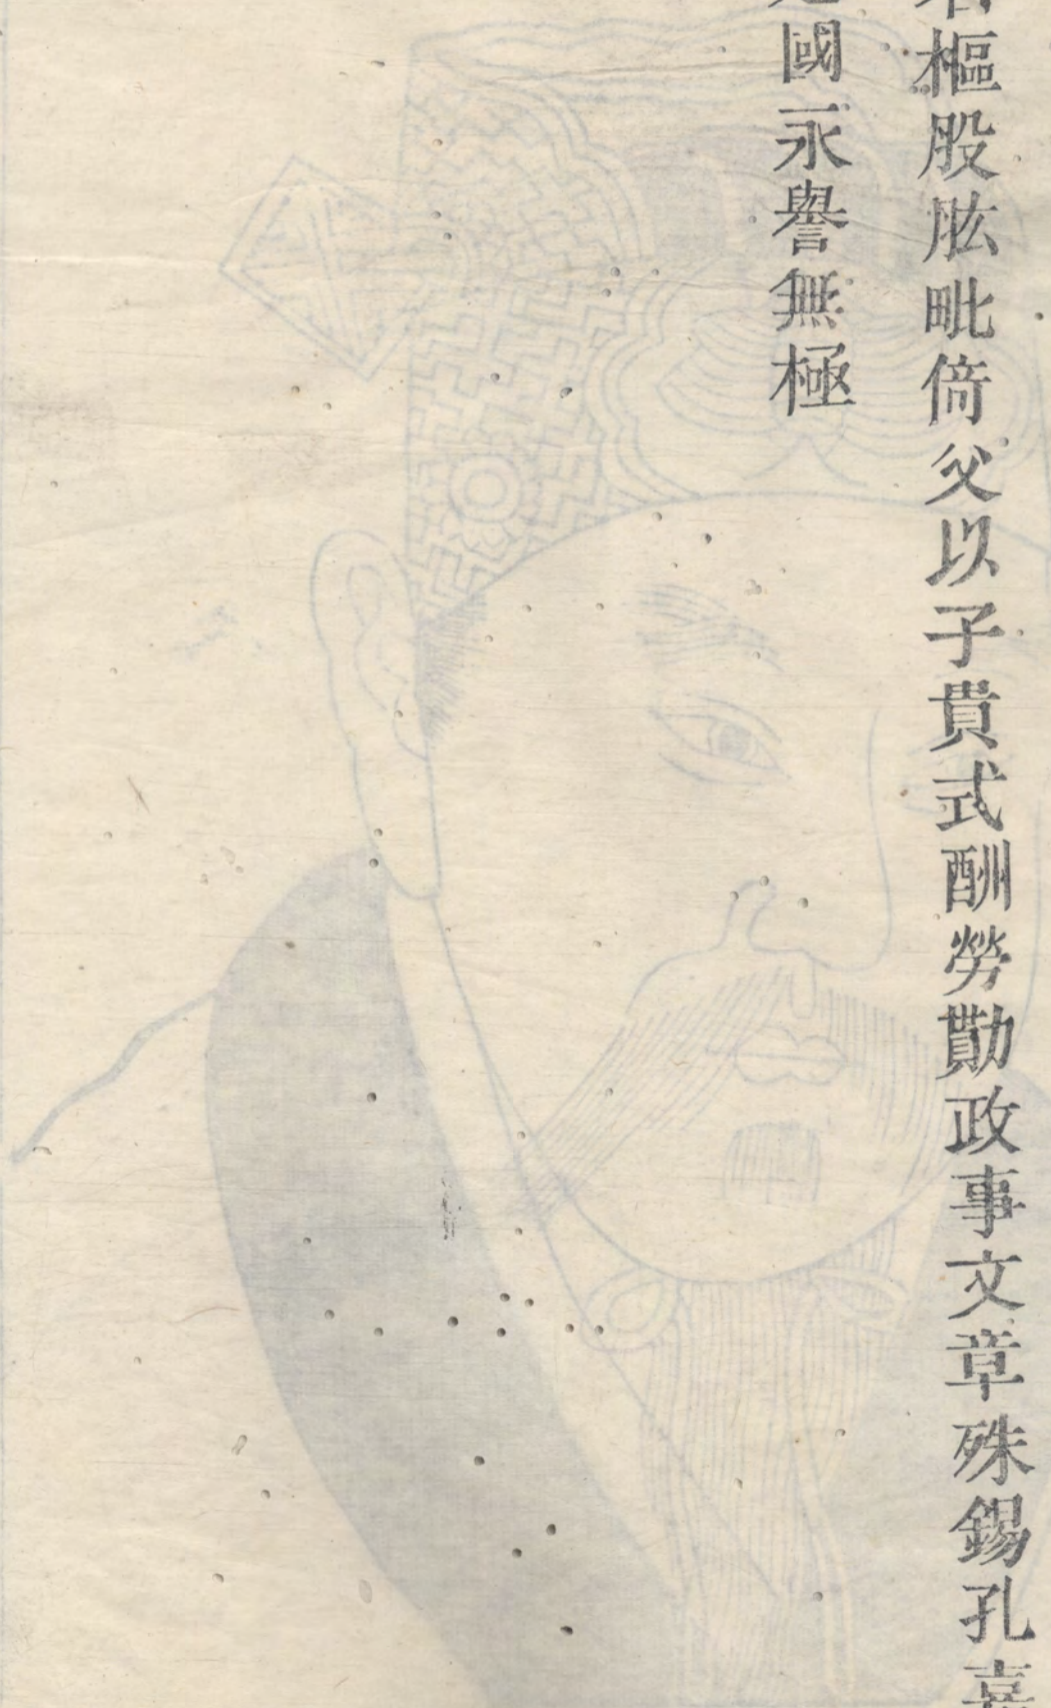 樞股肱毗倚父以子貴式酬勞勩政事文章殊錫孔
國永譽無極